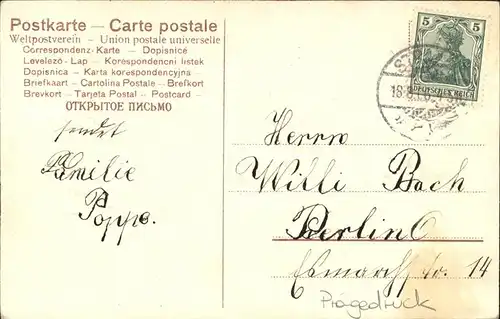 Postkarte — Carte postale
Weltpostverein — Union postale universelle
Correspondenz-Karte — Dopisnicé
Levelező-Lap — Korespondencni listek
Dopisnica — Karta korespondencyjna
Briefkaart — Cartolina Postale — Brefkort
Brevkort — Tarjeta Postal — Postcard —
ОТКРЫТОЕ ПИСЬМО
5 5
DEUTSCHES REICH
sendet
Familie
Poppe.
Herrn
Willi Bach
Berlin O
14
Prägedruck